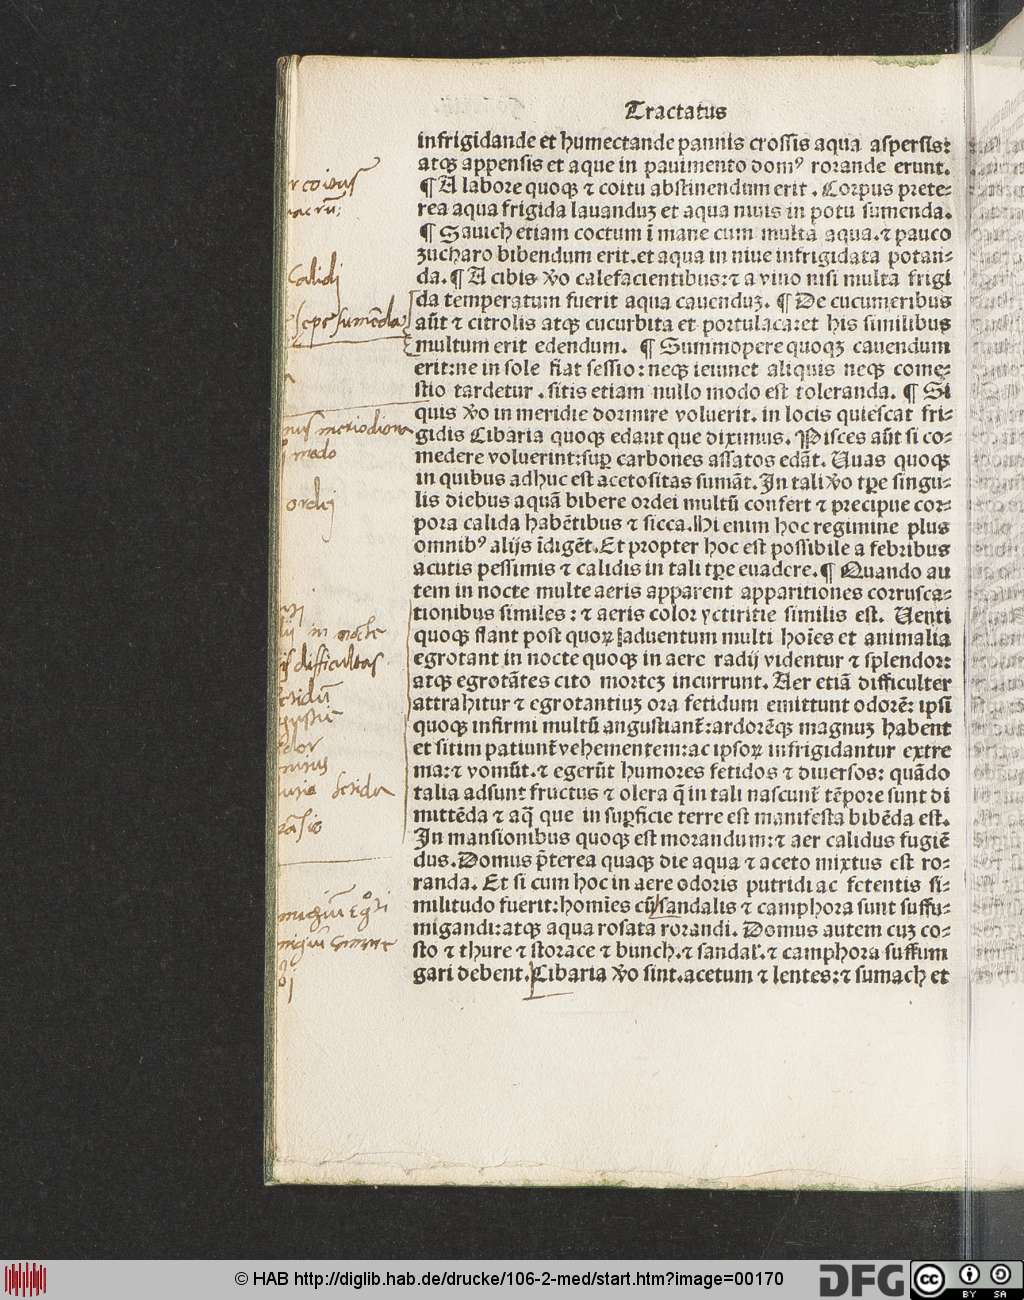 Tractatus
infrigidande et humectande pannis crossis aqua aspersis:
atqꝫ appensis et aque in pauimento domꝰ rorande erunt.
¶ A labore quoqꝫ ⁊ coitu abstinendum erit. Corpus prete-
rea aqua frigida lauanduꝫ et aqua niuis in potu sumenda.
¶ Sauich etiam coctum ī mane cum multa aqua.⁊ pauco
zucharo bibendum erit.et aqua in niue infrigidata potan-
da.¶ A cibis ꝟo calefacientibus:⁊ a vino nisi multa frigi
da temperatum fuerit aqua cauenduꝫ. ¶ De cucumeribus
aūt ⁊ citrolis atqꝫ cucurbita et portulaca:et his similibus
multum erit edendum. ¶ Summopere quoqꝫ cauendum
erit:ne in sole fiat sessio: neqꝫ ieiunet aliquis neqꝫ come-
stio tardetur. sitis etiam nullo modo est toleranda. ¶ Si
quis ꝟo in meridie dormire voluerit. in locis quiescat fri-
gidis Cibaria quoqꝫ edant que diximus. Pisces aūt si co-
medere voluerint:suꝑ carbones assatos edāt. Uuas quoqꝫ
in quibus adhuc est acetositas sumāt. In tali ꝟo tꝑe singu-
lis diebus aquā bibere ordei multū confert ⁊ precipue cor-
pora calida habētibus ⁊ sicca. Hi enim hoc regimine plus
omnibꝰ alijs īdigēt. Et propter hoc est possibile a febribus
acutis pessimis ⁊ calidis in tali tꝑe euadere. ¶ Quando au
tem in nocte multe aeris apparent apparitiones corrusca-
tionibus similes: ⁊ aeris color yctiritie similis est. Uenti
quoqꝫ flant post quoꝝ aduentum multi hoīes et animalia
egrotant in nocte quoqꝫ in aere radij videntur ⁊ splendor:
atqꝫ egrotātes cito morteꝫ incurrunt. Aer etiā difficulter
attrahitur ⁊ egrotantiuꝫ ora fetidum emittunt odorē: ipsi
quoqꝫ infirmi multū angustiant̄:ardorēqꝫ magnuꝫ habent
et sitim patiunt̄ vehementem:ac ipsoꝝ infrigidantur extre
ma:⁊ vomūt.⁊ egerūt humores fetidos ⁊ diuersos: quādo
talia adsunt fructus ⁊ olera q̄ in tali nascunt̄ tēpore sunt di
mittēda ⁊ aq̄ que in suꝑficie terre est manifesta bibēda est.
In mansionibus quoqꝫ est morandum:⁊ aer calidus fugiē
dus. Domus p̄terea quaqꝫ die aqua ⁊ aceto mixtus est ro-
randa. Et si cum hoc in aere odoris putridi ac fetentis si-
militudo fuerit:homīes cū sandalis ⁊ camphora sunt suffu-
migandi:atqꝫ aqua rosata rorandi. Domus autem cuꝫ co-
sto ⁊ thure ⁊ storace ⁊ bunch.⁊ sandal. ⁊ camphora suffum
gari debent. Cibaria ꝟo sint.acetum ⁊ lentes:⁊ sumach et
coitus
Calidi
sepe sumēda
meridiona
modo
ordej
in nocte
difficultas
fetidū
fetida
© HAB http://diglib.hab.de/drucke/106-2-med/start.htm?image=00170
DFG
cc BY SA